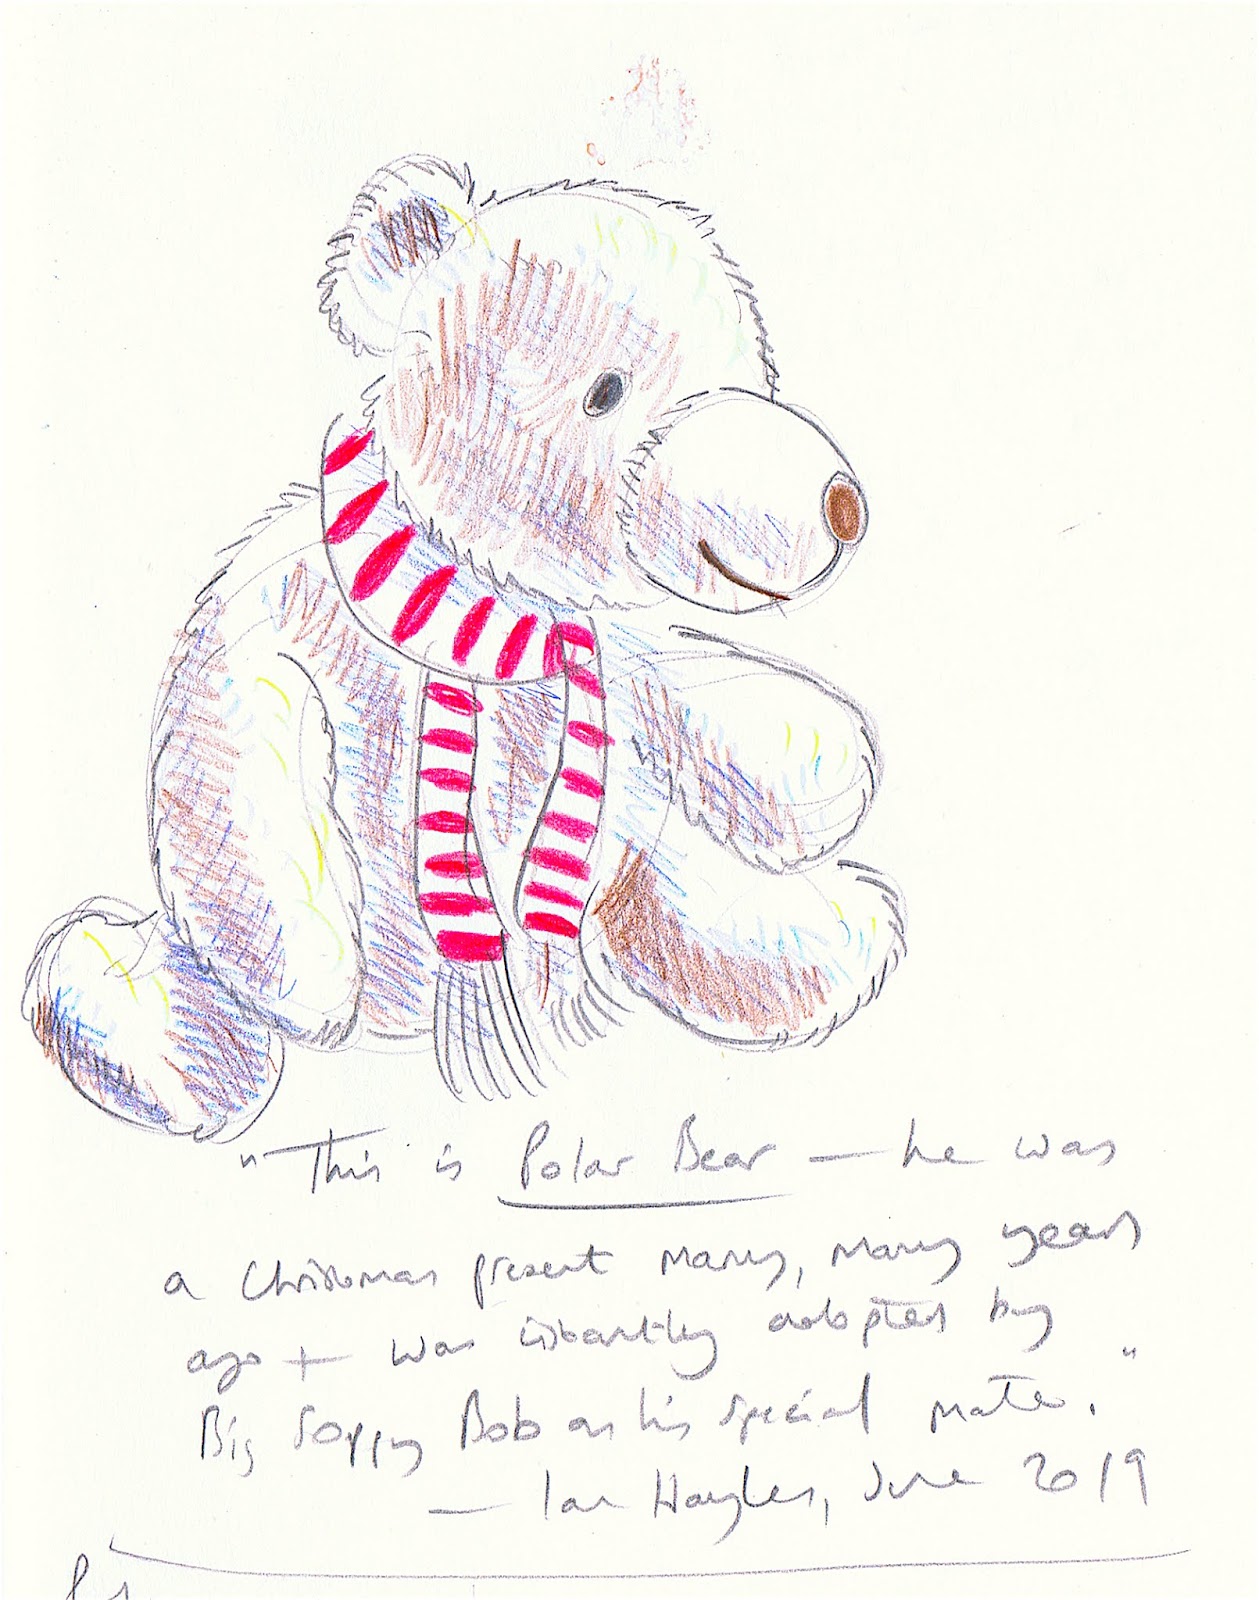 "This is Polar Bear — he was
a Christmas present many, many years
ago + was instantly adopted by
Big Soppy Bob as his special mate."
— Ian Hayles, June 2019